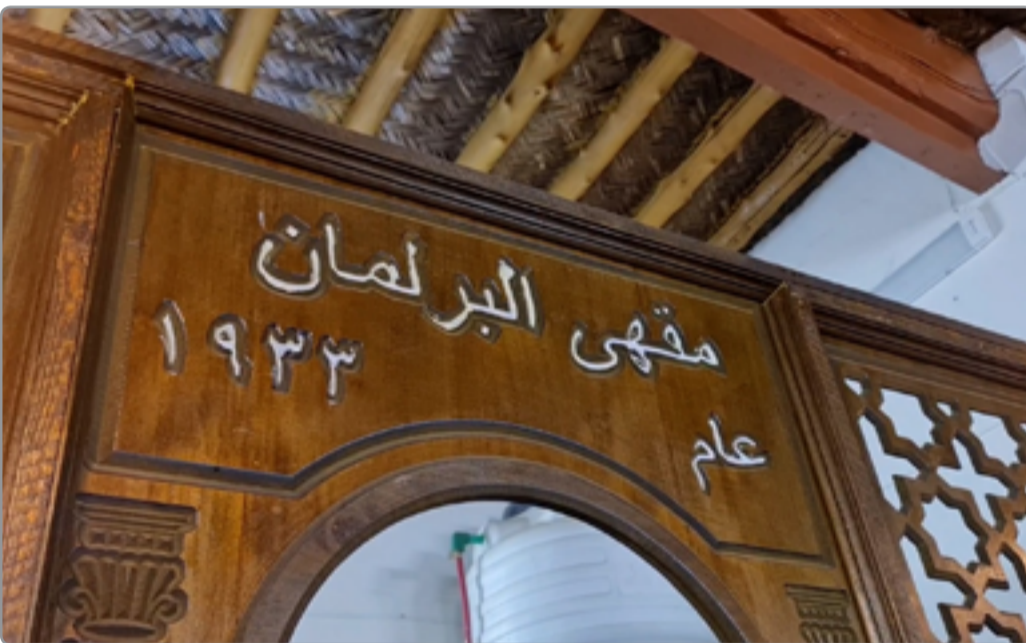 مقهى البرلمان
عام ١٩٣٣